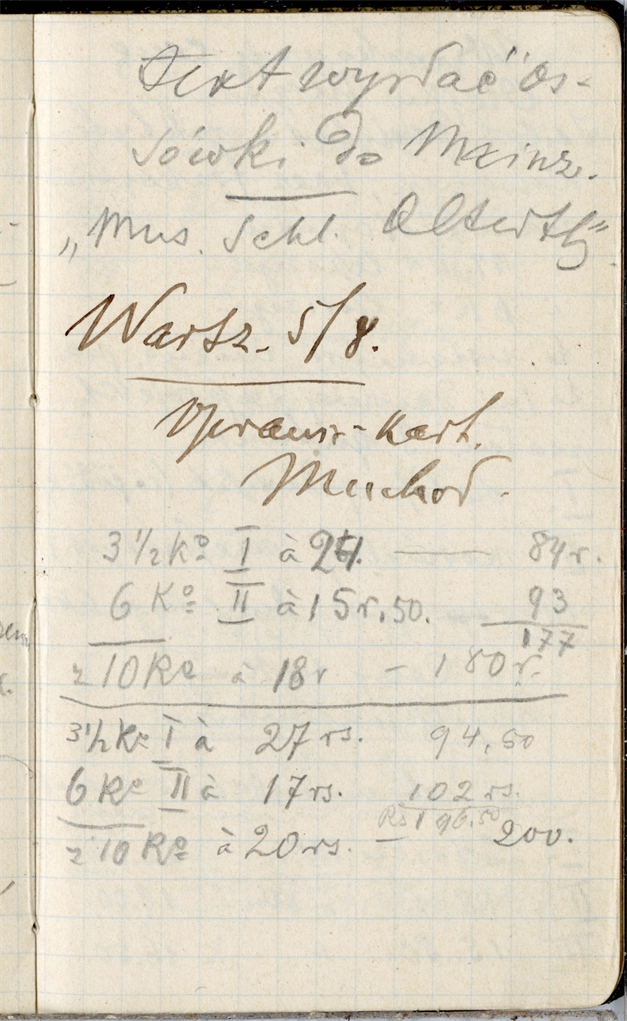 text wysłać Os-
sówki do Mainz.
„Mus. Schl. Alterth"
Warsz. 5/8.
Oprawn-kart.
Muchod.
3 1/2 Ko I à 24. — 84 r.
6 Ko II à 15 r. 50. 93
177
z 10 Ko à 18 r — 180 r.
3 1/2 Ko I à 27 rs. 94,50
6 Ko II à 17 rs. 102 rs.
Rs 196.50
z 10 Ko à 20 rs. — 200.